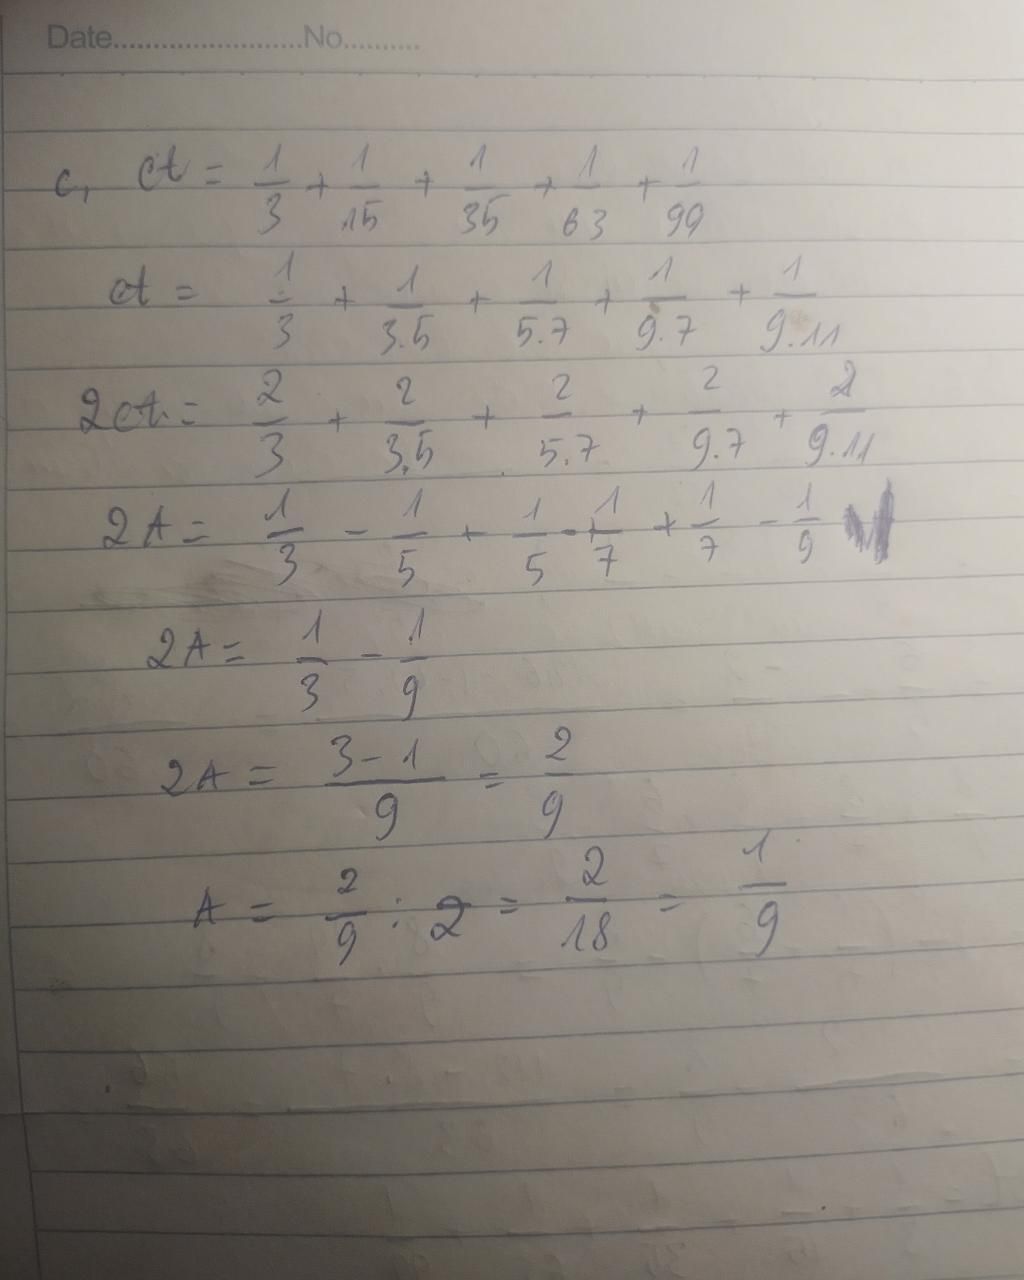 Date......................No..........
c, A = 1/3 + 1/15 + 1/35 + 1/63 + 1/99
A = 1/3 + 1/3.5 + 1/5.7 + 1/9.7 + 1/9.11
2A = 2/3 + 2/3.5 + 2/5.7 + 2/9.7 + 2/9.11
2A = 1/3 - 1/5 + 1/5 - 1/7 + 1/7 - 1/9
2A = 1/3 - 1/9
2A = 3-1/9 = 2/9
A = 2/9 : 2 = 2/18 = 1/9